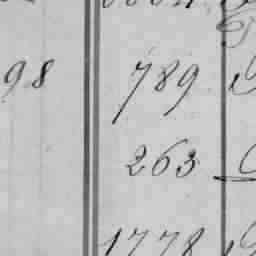 98 789
263
1778